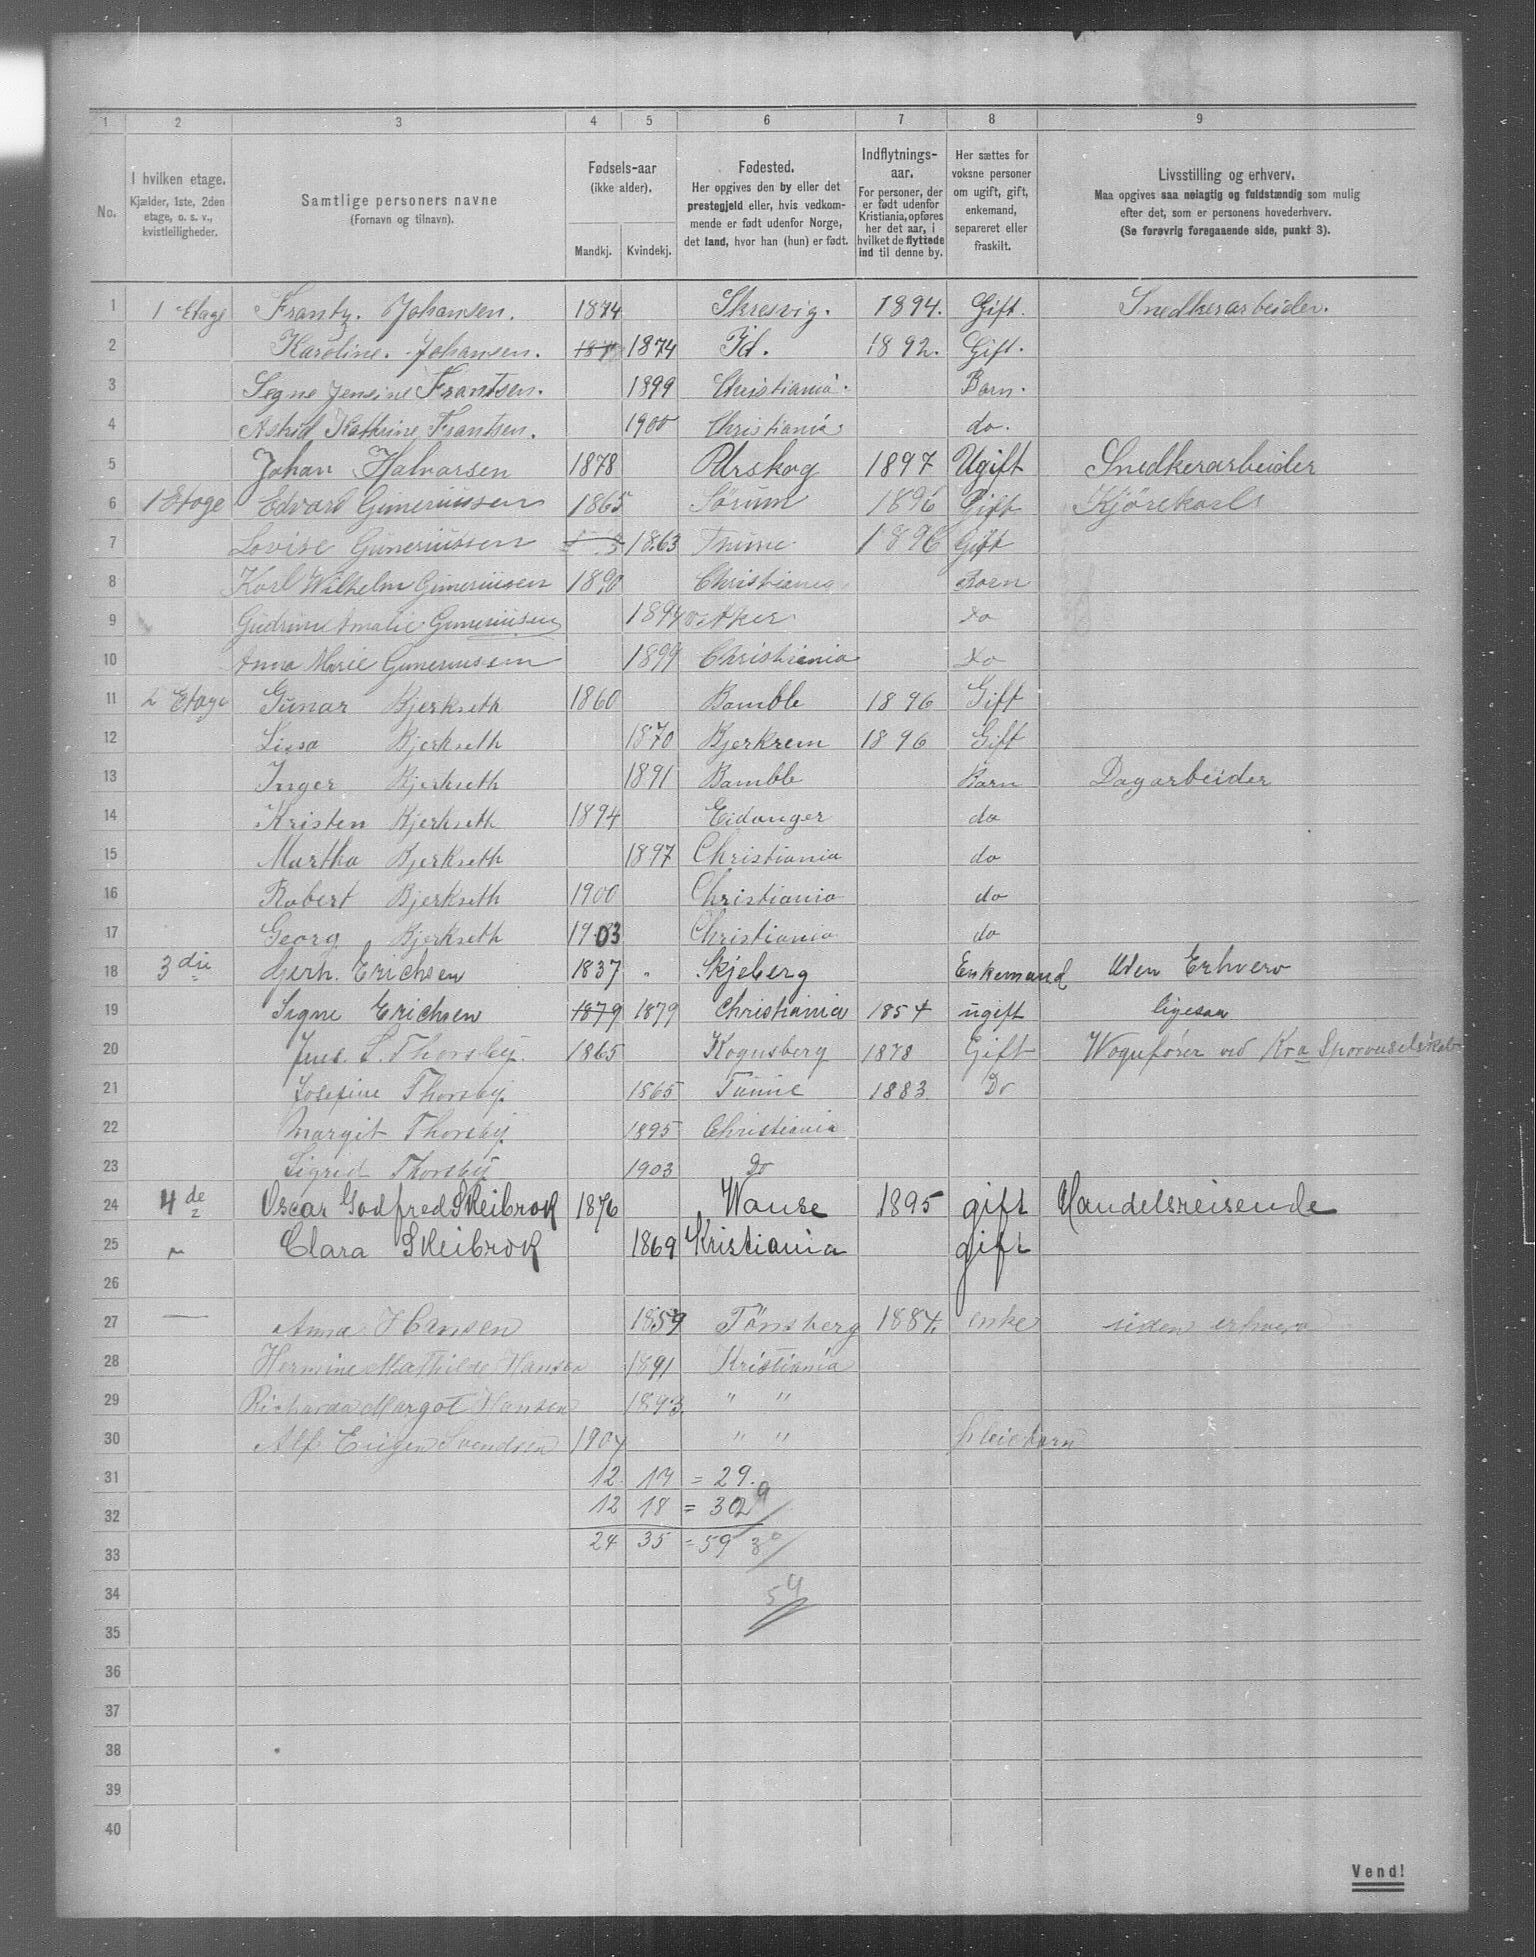 1 2 3 4 5 6 7 8 9
No.
I hvilken etage.
Kjælder, 1ste, 2den
etage, o. s. v.,
kvistleiligheder.
Samtlige personers navne
(Fornavn og tilnavn).
Fødsels-aar
(ikke alder).
Mandkj. Kvindekj.
Fødested.
Her opgives den by eller det
prestegjeld eller, hvis vedkom-
mende er født udenfor Norge,
det land, hvor han (hun) er født.
Indflytnings-
aar.
For personer, der
er født udenfor
Kristiania, opføres
her det aar, i
hvilket de flyttede
ind til denne by.
Her sættes for
voksne personer
om ugift, gift,
enkemand,
separeret eller
fraskilt.
Livsstilling og erhverv.
Maa opgives saa nøiagtig og fuldstændig som mulig
efter det, som er personens hovederhverv.
(Se forøvrig foregaaende side, punkt 3).
1 1 Etage Frantz. Johansen. 1874 Skresvig. 1894. Gift. Snedkerarbeider.
2 Karoline. Johansen. 187 1874 Id. 1892. Gift.
3 Segne Jensine Frantsen. 1899 Christiania. Barn.
4 Astrid Kathrine Frantsen. 1900 Christiania do.
5 Johan Halvarsen 1878 Urskog 1897 Ugift Snedkerarbeider
6 1 Etage Edvard Guneriussen 1865 Sørum 1896 Gift Kjørekarl
7 Lovise Gunerиussen 1863 1896 Gift
8 Karl Wilhelm Gunerиusen 1890 Christiania Barn
9 Gudrun Amalie Gunerиusen 1894 Aker Do
10 Anna Marie Gunerиussen 1899 Christiania Do
11 2 Etage Gunar Bjerkseth 1860 Bamble 1896 Gift
12 Lissa Bjerkseth 1870 Bjerkrem 1896 Gift
13 Inger Bjerkseth 1891 Bamble Barn Dagarbeider
14 Kristen Bjerkseth 1894 Eidanger do
15 Martha Bjerkseth 1897 Christiania do
16 Robert Bjerkseth 1900 Christiania do
17 Georg Bjerkseth 1903 Christiania do
18 3 die Gerh. Erichsen 1837 " Skjeberg Enkemand Uden Erhverv
19 Signe Erichsen 1879 1879 Christiania 1854 ugift ligesaa
20 Jens. S. Thorsby. 1865 Kognsberg 1878 Gift Vognfører ved Kra Sporveiselskab
21 Josefine Thorsby. 1865 1883 Do
22 Margit Thorsby. 1895 Christiania
23 Sigrid Thorsby 1903 Do
24 4 de Oscar Godfred Skeibrok 1876 Vanse 1895 gift Handelsreisende
25 " Clara Skeibrok 1869 Kristiania gift
26
27 — Anna Hansen 1859 Tønsberg 1884. enke uden erhverv
28 Hermine Mathilde Hansen 1891 Kristiania
29 Richarda Margot Hansen 1893. " "
30 Alf Eugen Svendsen 1907 " " Pleiebarn
31 12 17 = 29.
32 12 18 = 302 9
33 24 35 = 59 30
34 54
35
36
37
38
39
40
Vend!